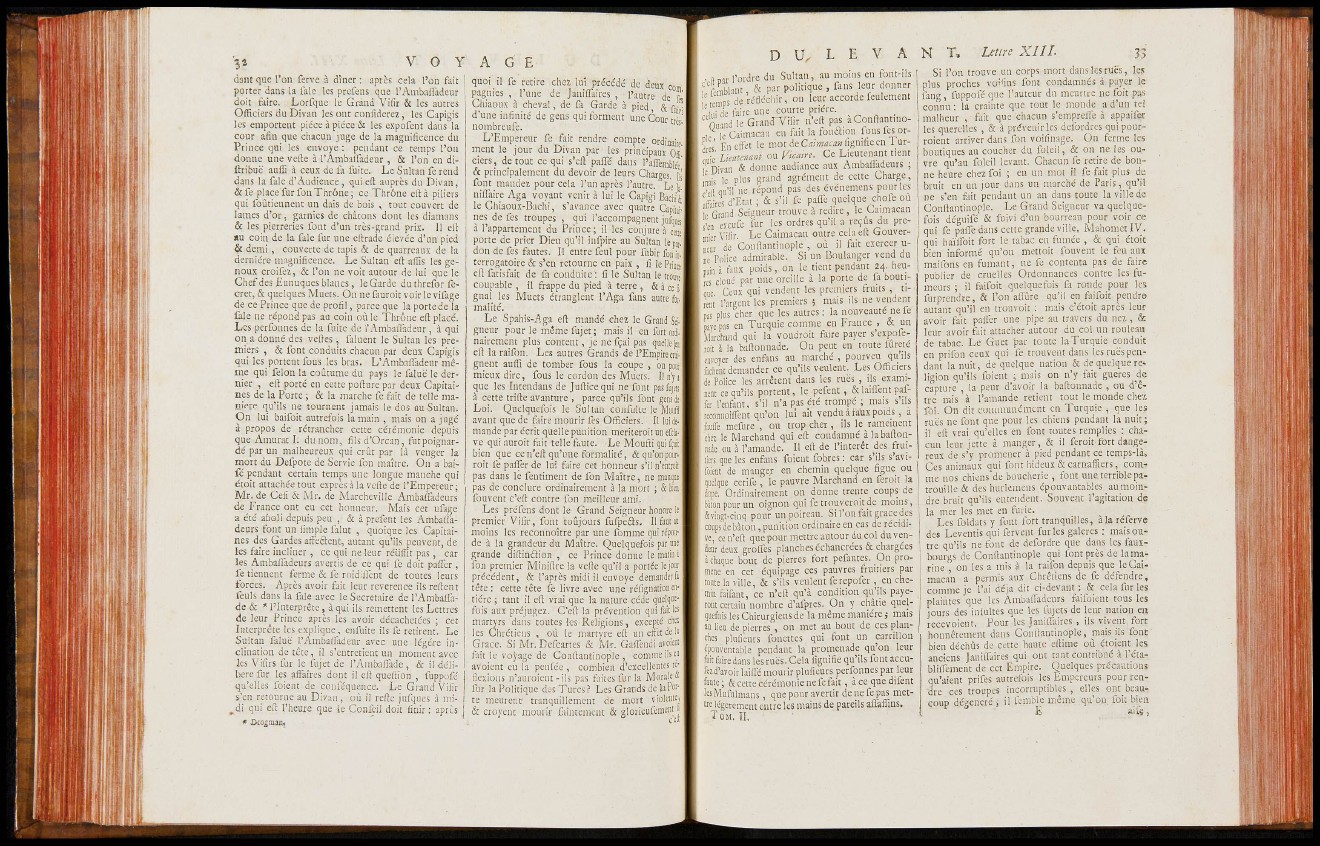 32 VOYAGE
dant que l'on serve à dîner : après cela l'on fait
porter dans la sale les presens que l'Ambassadeur
doit faire. Lorsque le Grand Visir & les autres
Officiers du Divan les ont considerez, les Capigis
les emportent piéce à piéce & les exposent dans la
cour afin que chacun juge de la magnificence du
Prince qui les envoye : pendant ce temps l'on
donne une veste à l'Ambassadeur, & l'on en di-
stribuë aussi à ceux de sa suite. Le Sultan se rend
dans la sale d'Audience, qui est auprès du Divan,
& se place sur son Thrône ; ce Thrône est à piliers
qui soûtiennent un dais de bois, tout couvert de
lames d'or, garnies de châtons dont les diamans
& les pierreries sont d'un très-grand prix. Il est
au coin de la sale sur une estrade élevée d'un pied
& demi, couverte de tapis & de quarreaux de la
derniére magnificence. Le Sultan est assis les ge-
noux croisez, & l'on ne voit autour de lui que le
Chef des Eunuques blancs, le Garde du thresor se-
cret, & quelques Muets. On ne sauroit voir le visage
de ce Prince que de profil, parce que la porte de la
sale ne répond pas au coin où le Thrône est placé.
Les personnes de la suite de l'Ambassadeur, à qui
on a donné des vestes, saluent le Sultan les pre-
miers, & sont conduits chacun par deux Capigis
qui les portent sous les bras. L'Ambassadeur mê-
me qui selon la coûtume du pays le saluë le der-
nier, est porté en cette posture par deux Capitai-
nes de la Porte ; & la marche se fait de telle ma-
niere qu'ils ne tournent jamais le dos au Sultan.
On lui baisoit autrefois la main, mais on a jugé
à propos de rétrancher cette cérémonie depuis
que Amurat I. du nom, fils d'Orcan, fut poignar-
dé par un malheureux qui crût par là venger la
mort du Despote de Servie son maître. On a bai-
sé pendant certain temps une longue manche qui
étoit attachée tout exprès à la veste de l'Empereur ;
Mr. de Cesi & Mr. de Marcheville Ambassadeurs
de France ont eu cet honneur. Mais cet usage
a été aboli depuis peu, & à present les Ambassa-
deurs font un simple salut, quoique les Capitai-
nes des Gardes affectent, autant qu'ils peuvent, de
les faire incliner, ce qui ne leur réüssit pas, car
les Ambassadeurs avertis de ce qui se doit passer,
se tiennent ferme & se roidissent de toutes leurs
forces. Après avoir fait leur reverence ils restent
seuls dans la sale avec le Secretaire de l'Ambassa-
de & * l'Interprête, à qui ils remettent les Lettres
de leur Prince après les avoir décachetées ; cet
Interprête les explique, ensuite ils se retirent. Le
Sultan saluë l'Ambassadeur avec une légére in-
clination de tête, il s'entretient un moment avec
les Visirs sur le sujet de l'Ambassade, & il déli-
bere sur les affaires dont il est question, supposé
qu'elles soient de conséquence. Le Grand Visir
s'en retourne au Divan, où il reste jusques à mi-
di qui est l'heure que le Conseil doit finir : après
* Drogman,
quoi il se retire chez lui précédé de deux com-
pagnies, l'une de Janissaires, l'autre de ses
Chiaoux à cheval, de sa Garde à pied, & suivi
d'une infinité de gens qui forment une Cour très-
nombreuse.
L'Empereur se fait rendre compte ordinaire-
ment le jour du Divan par les principaux Offi-
ciers, de tout ce qui s'est passé dans l'assemblée,
& principalement du devoir de leurs Charges. Ils
sont mandez pour cela l'un après l'autre. Le Ja-
nissaire Aga voyant venir à lui le Capigi Bachi &
le Chiaoux-Bachi, s'avance avec quatre Capitai-
nes de ses troupes, qui l'accompagnent jusques
à l'appartement du Prince ; il les conjure à cette
porte de prier Dieu qu'il inspire au Sultan le par-
don de ses fautes. Il entre seul pour subir son in-
terrogatoire & s'en retourne en paix, si le Prince
est satisfait de sa conduite : si le Sultan le trouve
coupable, il frappe du pied à terre, & à ce si-
gnal les Muets étranglent l'Aga sans autre for-
malité.
Le Spahis-Aga est mandé chez le Grand Sei-
gneur pour le même sujet ; mais il en sort ordi-
nairement plus content, je ne sçai pas quelle en
est la raison. Les autres Grands de l'Empire crai-
gnent aussi de tomber sous la coupe, ou pour
mieux dire, sous le cordon des Muets. Il n'y a
que les Intendans de Justice qui ne sont pas sujets
à cette triste avanture, parce qu'ils sont gens de
Loi. Quelquefois le Sultan consulte le Mufti
avant que de faire mourir ses Officiers. Il lui de-
mande par écrit quelle punition meriteroit un escla-
ve qui auroit fait telle faute. Le Moufti qui sçait
bien que ce n'est qu'une formalité, & qu'on pour-
roit se passer de lui faire cet honneur s'il n'entroit
pas dans le sentiment de son Maître, ne manque
pas de conclure ordinairement à la mort ; & bien
souvent c'est contre son meilleur ami.
Les présens dont le Grand Seigneur honore le
premier Visir, sont toûjours suspects. Il faut au
moins les reconnoître par une somme qui répon-
de à la grandeur du Maître. Quelquefois par une
grande distinction, ce Prince donne le matin à
son premier Ministre la veste qu'il a portée le jour
précédent, & l'après midi il envoye demander sa
tête : cette tête se livre avec une résignation en-
tiére ; tant il est vrai que la nature céde quelque-
fois aux préjugez. C'est la prévention qui fait les
martyrs dans toutes les Religions, excepté chez
les Chrétiens, où le martyre est un effet de la
Grace. Si Mr. Descartes & Mr. Gassendi avoient
fait le voyage de Constantinople, comme ils en
avoient eu la pensée, combien d'excellentes ré-
flexions n'auroient-ils pas faites sur la Morale &
sur la Politique des Turcs ? Les Grands de la Por-
te meurent tranquillement de mort violente,
& croyent mourir saintement & glorieusement si
c'est
DU LEVANT. Lettre XIII. 33
c'est par l'ordre du Sultan, au moins en font-ils
le semblant, & par politique, sans leur donner
le temps de réfléchir, on leur accorde seulement
celui de faire une courte priére.
Quand le Grand Visir n'est pas à Constantino-
ple, le Caimacan en fait la fonction sous ses or-
dres. En effet le mot de Caimacan signifie en Tur-
quie Lieutenant ou Vicaire. Ce Lieutenant tient
le Divan & donne audiance aux Ambassadeurs ;
mais le plus grand agrément de cette Charge,
c'est qu'il ne répond pas des événemens pour les
affaires d'Etat ; & s'il se passe quelque chose où
le Grand Seigneur trouve à redire, le Caimacan
s'en excuse sur les ordres qu'il a reçûs du pre-
mier Visir. Le Caimacan outre cela est Gouver-
neur de Constantinople, où il fait exercer u-
ne Police admirable. Si un Boulanger vend du
pain à faux poids, on le tient pendant 24. heu-
res cloué par une oreille à la porte de sa bouti-
que. Ceux qui vendent les premiers fruits, ti-
rent l'argent les premiers ; mais ils ne vendent
pas plus cher que les autres : la nouveauté ne se
paye pas en Turquie comme en France, & un
Marchand qui la voudroit faire payer s'expose-
roit à la bastonnade. On peut en toute sûreté
envoyer des enfans au marché, pourveu qu'ils
sachent demander ce qu'ils veulent. Les Officiers
de Police les arrêtent dans les ruës, ils exami-
nent ce qu'ils portent, le pesent, & laissent pas-
ser l'enfant, s'il n'a pas été trompé ; mais s'ils
reconnoissent qu'on lui ait vendu à faux poids, à
fausse mesure, ou trop cher, ils le rameinent
chez le Marchand qui est condamné à la baston-
nade ou à l'amande. Il est de l'interêt des frui-
tiers que les enfans soient sobres : car s'ils s'avi-
soient de manger en chemin quelque figue ou
quelque cerise, le pauvre Marchand en seroit la
dupe. Ordinairement on donne trente coups de
bâton pour un oignon qui se trouveroit de moins,
& vingt-cinq pour un poireau. Si l'on fait grace des
coups de bâton, punition ordinaire en cas de récidi-
ve, ce n'est que pour mettre autour du col du ven-
deur deux grosses planches échancrées & chargées
à chaque bout de pierres fort pesantes. On pro-
mene en cet équipage ces pauvres fruitiers par
toute la ville, & s'ils veulent se reposer, en che-
min faisant, ce n'est qu'à condition qu'ils paye-
ront certain nombre d'aspres. On y châtie quel-
quefois les Chirurgiens de la même maniére ; mais
au lieu de pierres, on met au bout de ces plan-
ches plusieurs sonettes qui font un carrillon
épouventable pendant la promenade qu'on leur
fait faire dans les ruës. Cela signifie qu'ils sont accu-
sez d'avoir laissé mourir plusieurs personnes par leur
faute ; & cette cérémonie ne se fait, à ce que disent
les Musulmans, que pour avertir de ne se pas met-
tre légerement entre les mains de pareils assassins.
Tom. II.
Si l'on trouve un corps mort dans les ruës, les
plus proches voisins sont condamnés à payer le
sang, supposé que l'auteur du meurtre ne soit pas
connu : la crainte que tout le monde a d'un tel
malheur, fait que chacun s'empresse à appaiser
les querelles, & à prévenir les desordres qui pour-
roient arriver dans son voisinage. On ferme les
boutiques au coucher du soleil, & on ne les ou-
vre qu'au soleil levant. Chacun se retire de bon-
ne heure chez soi ; en un mot il se fait plus de
bruit en un jour dans un marché de Paris, qu'il
ne s'en fait pendant un an dans toute la ville de
Constantinople. Le Grand Seigneur va quelque-
fois déguisé & suivi d'un bourreau pour voir ce
qui se passe dans cette grande ville. Mahomet IV.
qui haïssoit fort le tabac en fumée, & qui étoit
bien informé qu'on mettoit souvent le feu aux
maisons en fumant, ne se contenta pas de faire
publier de cruelles Ordonnances contre les fu-
meurs ; il faisoit quelquefois sa ronde pour les
surprendre, & l'on assûre qu'il en faisoit pendre
autant qu'il en trouvoit : mais c'étoit après leur
avoir fait passer une pipe au travers du nez, &
leur avoir fait attacher autour du col un rouleau
de tabac. Le Guet par toute la Turquie conduit
en prison ceux qui se trouvent dans les ruës pen-
dant la nuit, de quelque nation & de quelque re-
ligion qu'ils soient ; mais on n'y fait gueres de
capture, la peur d'avoir la bastonnade, ou d'ê-
tre mis à l'amande retient tout le monde chez
soi. On dit communément en Turquie, que les
ruës ne sont que pour les chiens pendant la nuit ;
il est vrai qu'elles en sont toutes remplies : cha-
cun leur jette à manger, & il seroit fort dange-
reux de s'y promener à pied pendant ce temps-là.
Ces animaux qui sont hideux & carnassiers, com-
me nos chiens de boucherie, font une terrible pa-
trouille & des hurlemens épouvantables au moin-
dre bruit qu'ils entendent. Souvent l'agitation de
la mer les met en furie.
Les soldats y sont fort tranquilles, à la réserve
des Leventis qui servent sur les galeres : mais ou-
tre qu'ils ne font de desordre que dans les faux-
bourgs de Constantinople qui sont près de la ma-
rine, on les a mis à la raison depuis que le Cai-
macan a permis aux Chrétiens de se défendre,
comme je l'ai déja dit ci-devant ; & cela sur les
plaintes que les Ambassadeurs faisoient tous les
jours des insultes que les sujets de leur nation en
recevoient. Pour les Janissaires, ils vivent fort
honnêtement dans Constantinople, mais ils sont
bien déchûs de cette haute estime où étoient les
anciens Janissaires qui ont tant contribué à l'éta-
blissement de cet Empire. Quelques précautions
qu'aient prises autrefois les Empereurs pour ren-
dre ces troupes incorruptibles, elles ont beau-
coup dégeneré ; il semble même qu'on soit bien
E aise,